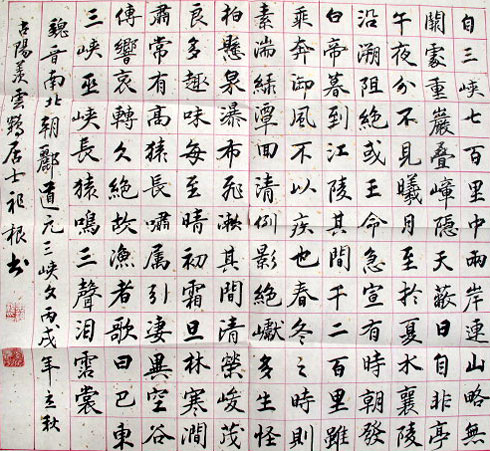 自三峽七百里中兩岸連山略無
闕處重巖疊嶂隱天蔽日自非亭
午夜分不見曦月至於夏水襄陵
沿溯阻絕或王命急宣有時朝發
白帝暮到江陵其間千二百里雖
乘奔御風不以疾也春冬之時則
素湍綠潭回清倒影絕巘多生怪
柏懸泉瀑布飛漱其間清榮峻茂
良多趣味每至晴初霜旦林寒澗
肅常有高猿長嘯属引凄異空谷
傳響哀轉久絕故漁者歌曰巴東
三峽巫峽長猿鳴三聲泪霑裳
魏晉南北朝酈道元三峽文丙戌年立秋
古陽羨雲鶴居士祖根书